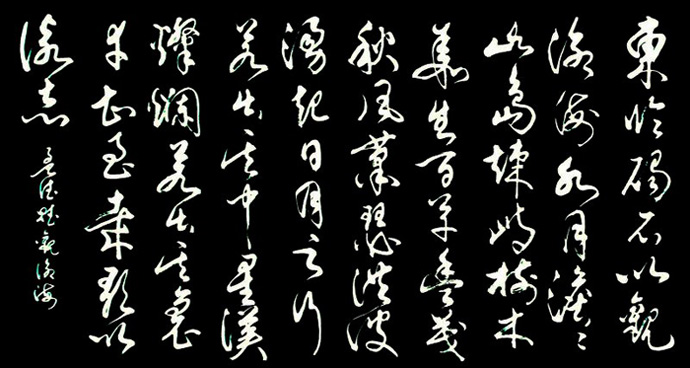 東臨碣石以觀
滄海水何澹〻
山島竦峙樹木
叢生百草豐茂
秋風蕭瑟洪波
湧起日月之行
若出其中星漢
燦爛若出其裏
幸甚至哉歌以
詠志
孟德觀滄海